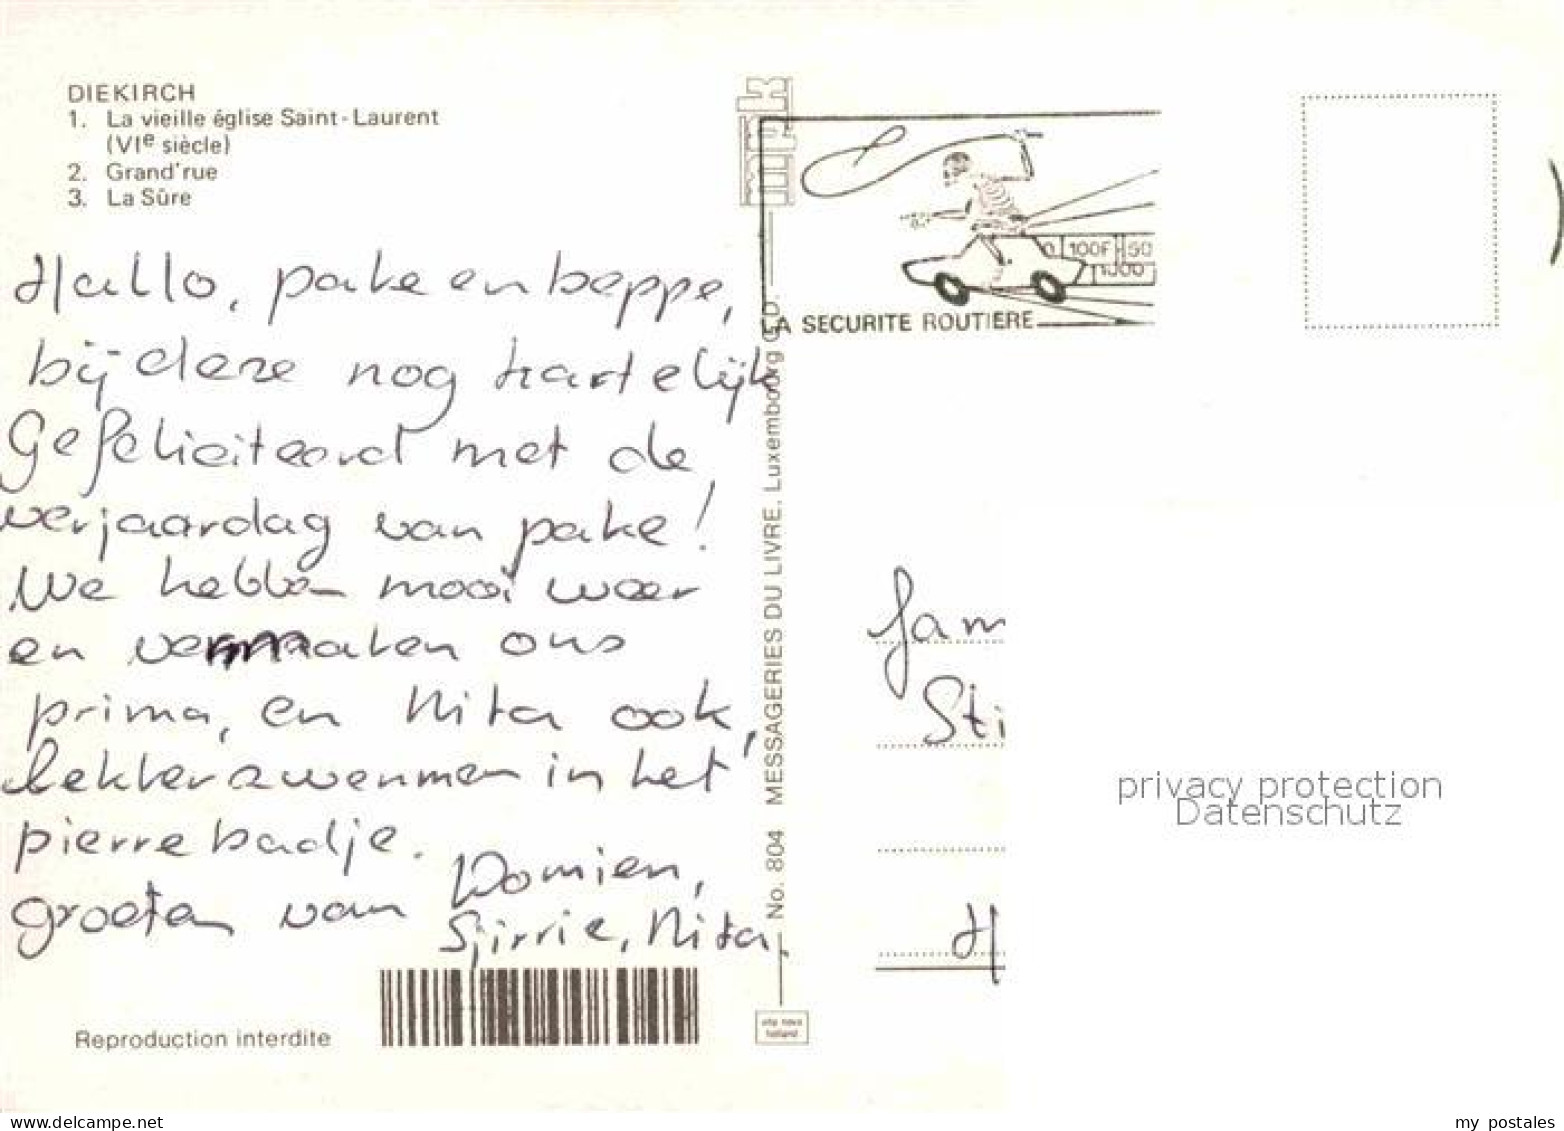 DIEKIRCH
1. La vieille église Saint-Laurent
(VIe siècle)
2. Grand'rue
3. La Sûre
Hallo, pake en beppe,
bij deze nog hartelijk
Gefeliciteerd met de
verjaardag van pake!
We hebben mooi weer
en vermaken ons
prima, en Nita ook,
lekker zwemmen in het
pierrebadje.
groeten van Domien,
Sjirrie, Nita.
Reproduction interdite
mdk
No. 804 MESSAGERIES DU LIVRE, Luxembourg G.D.
holland
0 100F 50
1000
LA SECURITE ROUTIERE
fam
Sti
H
privacy protection
Datenschutz
www.delcampe.net
my_postales